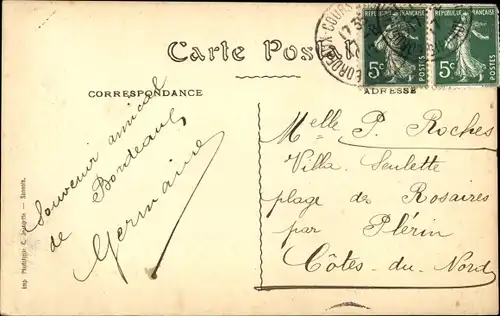 Carte Postale
CORRESPONDANCE
ADRESSE
REPUBLIQUE FRANÇAISE
5c
POSTES
REPUBLIQUE FRANÇAISE
5c
POSTES
BORDEAUX-COURS
Souvenir amical
de Bordeaux
Germaine
Melle P. Roches
Villa
plage des Rosaires
par Plérin
Côtes-du-Nord